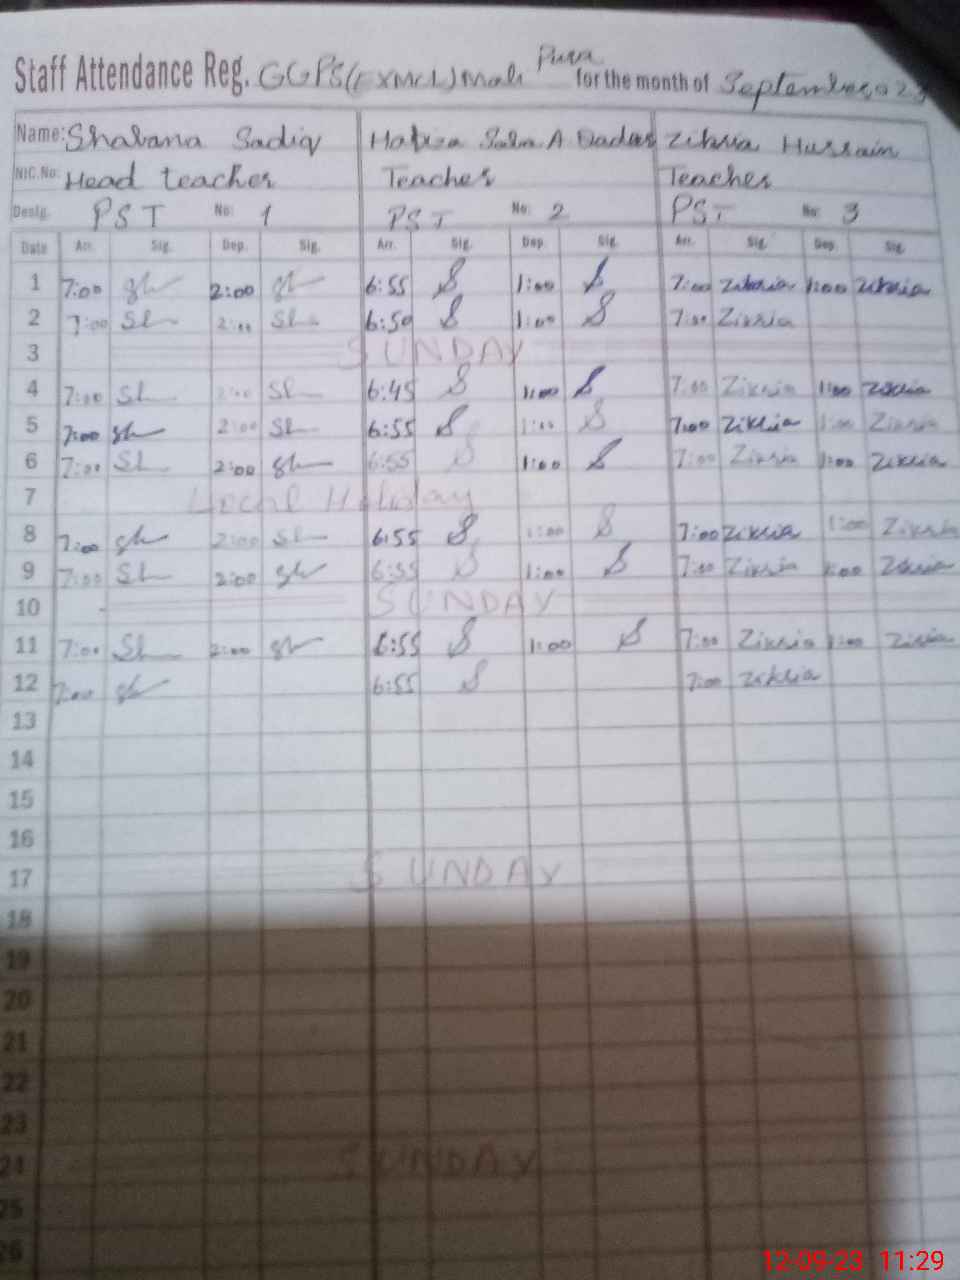 Staff Attendance Reg. GGPS(EXMCL)Mali Pura for the month of September 2023
Name: Shabana Sadiq Sadar Zikria Hussain
NIC.No: Head teacher Teacher Teacher
Desig. PST No: 1 PST No: 2 PST No: 3
Date Arr. Sig. Dep. Sig. Arr. Sig. Dep. Sig. Arr. Sig. Dep. Sig.
1 7:00 Sh 2:00 Sh 6:55 S 1:00 S 7:00 Zikria 1:00 Zikria
2 7:00 Sh 2:00 Sh 6:50 S 1:00 S 7:00 Zikria
3 SUNDAY
4 7:00 Sh 2:00 Sh 6:45 S 1:00 S 7:00 Zikria 1:00 Zikria
5 7:00 Sh 2:00 Sh 6:55 S 1:00 S 7:00 Zikria 1:00 Zikria
6 7:00 Sh 2:00 Sh 6:55 S 1:00 S 7:00 Zikria 1:00 Zikria
7 Local Holiday
8 7:00 Sh 2:00 Sh 6:55 S 1:00 S 7:00 Zikria 1:00 Zikria
9 7:00 Sh 2:00 Sh 6:55 S 1:00 S 7:00 Zikria 1:00 Zikria
10 SUNDAY
11 7:00 Sh 2:00 Sh 6:55 S 1:00 S 7:00 Zikria 1:00 Zikria
12 7:00 Sh 6:55 S 7:00 Zikria
13
14
15
16
17 SUNDAY
18
19
20
21
22
23
24 SUNDAY
25
26
12-09-23 11:29